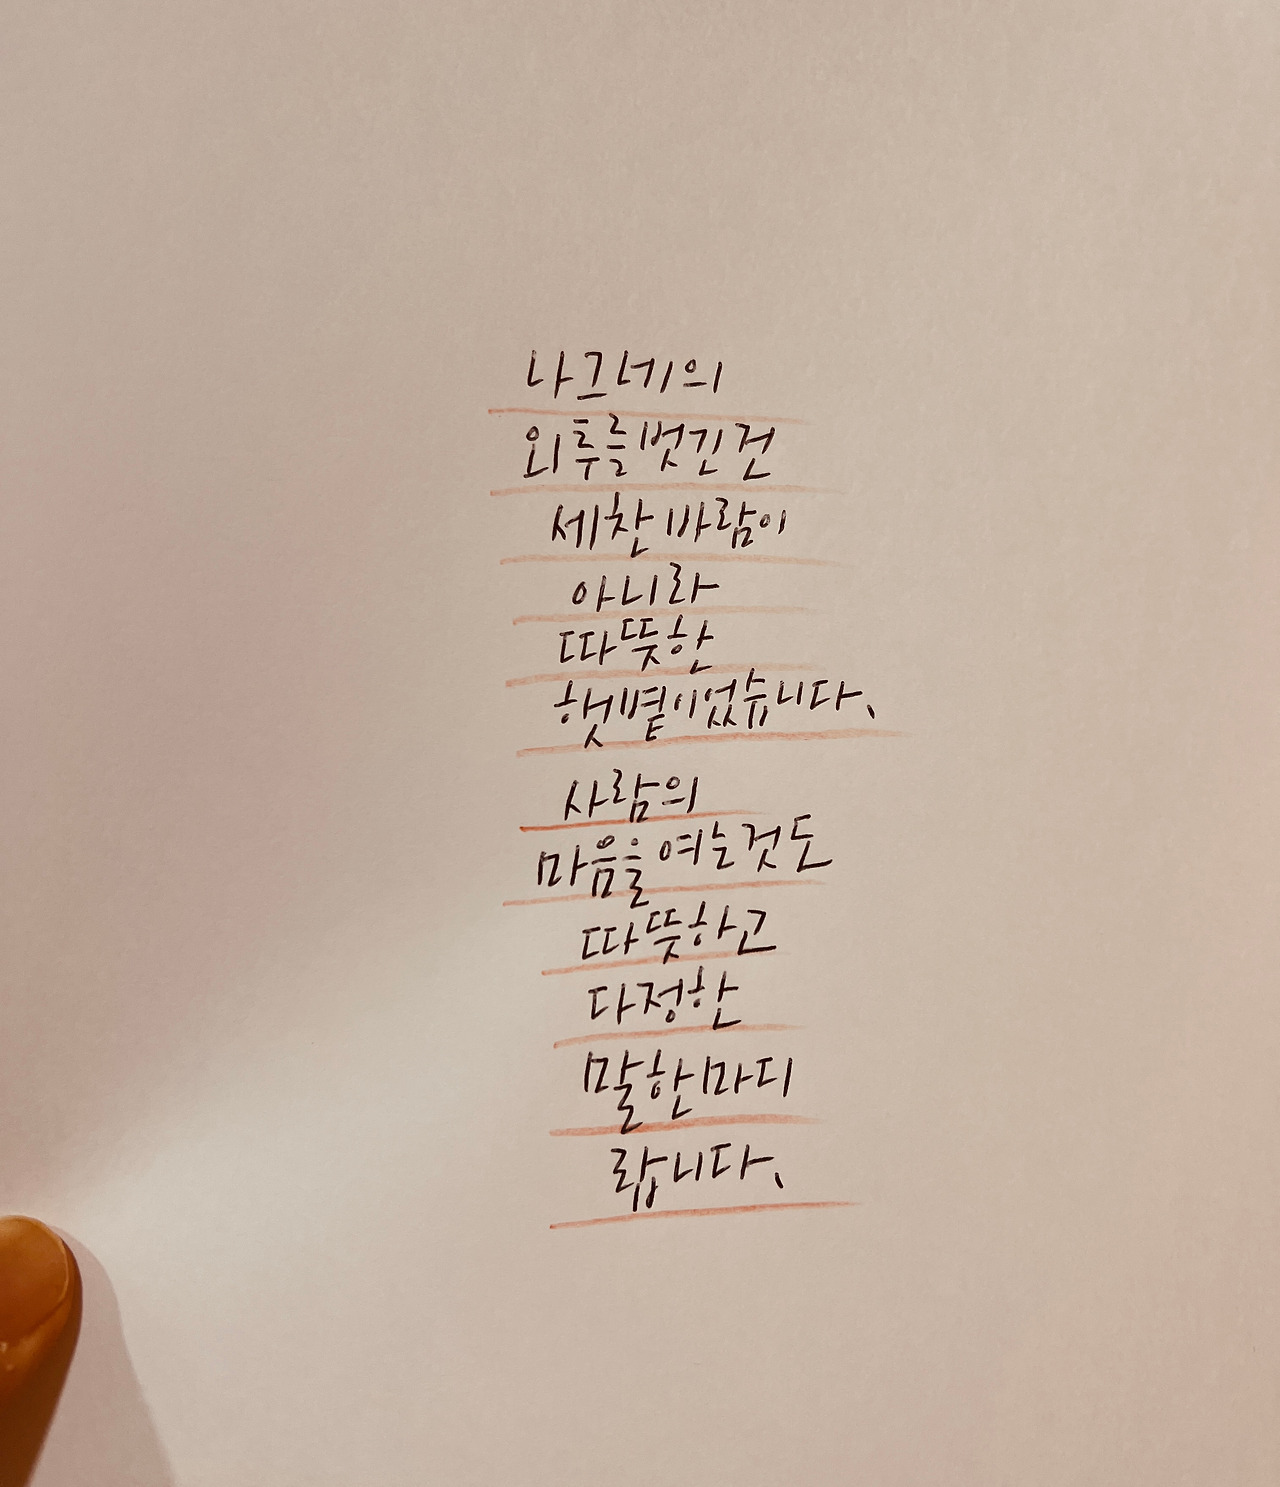 나그네의
외투를 벗긴 건
세찬 바람이
아니라
따뜻한
햇볕이었습니다.
사람의
마음을 여는 것도
따뜻하고
다정한
말 한마디
랍니다.